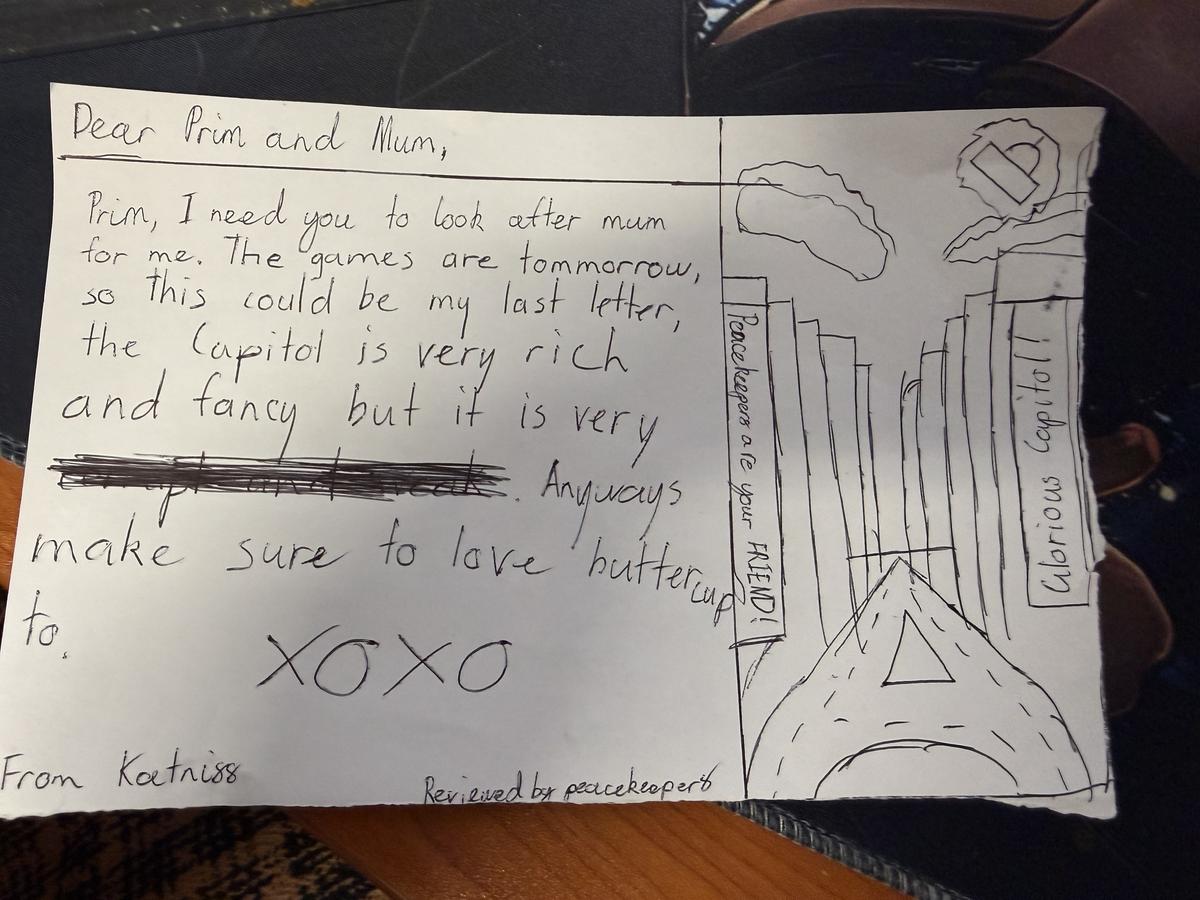 Dear Prim and Mum,
Prim, I need you to look after mum
for me. The games are tommorrow,
so this could be my last letter,
the Capitol is very rich
and fancy but it is very
and . Anyways
make sure to love buttercup
to.
XOXO
From Katniss
Reviewed by peacekeepers
Peacekeepers are your FRIEND!
Glorious Capitol!